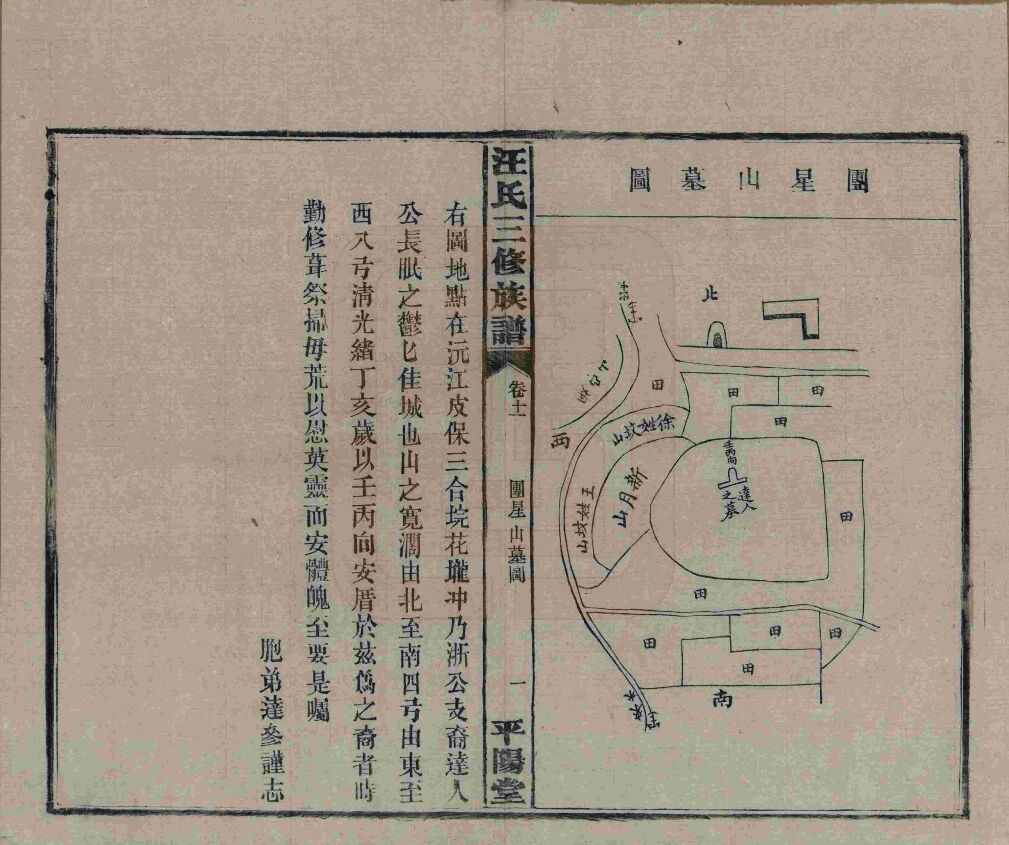 團星山墓圖
北
田
田
田
田
徐姓坟山
西
新月山
王姓坟山
壬丙向
達人
之墓
田
田
田
田
田
田
南
汪氏三修族譜
卷十一
團星山墓圖
一
平陽堂
右圖地點在沅江皮保三合垸花壠冲乃浙公支裔達人
公長眠之鬱匕佳城也山之寬濶由北至南四弓由東至
西八弓清光緒丁亥歲以壬丙向安厝於茲爲之裔者時
勤修葺祭掃毋荒以慰英靈而安體魄至要是囑
胞弟達參謹志